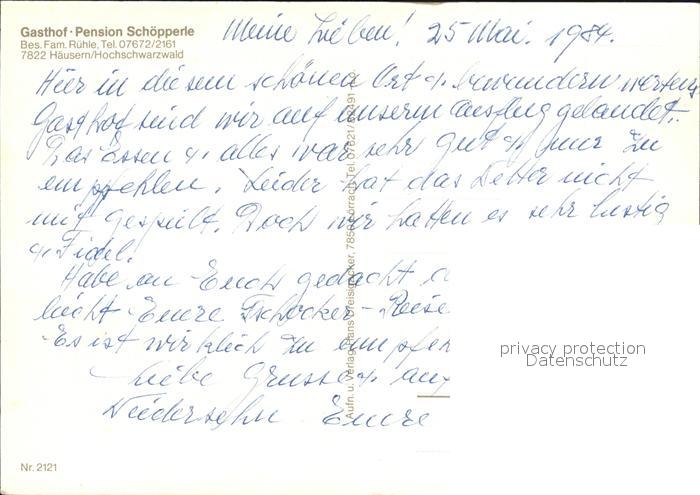 Gasthof · Pension Schöpperle
Bes. Fam. Rühle, Tel. 07672/2161
7822 Häusern/Hochschwarzwald
Meine Lieben! 25 Mai. 1984.
Hier in diesem schönen Ort u. bewundern werten
Gasthof sind wir auf unserm Ausflug gelandet.
Das Essen u. alles war sehr gut u. nur zu
empfehlen. Leider hat das Wetter nicht
mit gespielt. Doch wir hatten es sehr lustig
u. Fidel.
Habe an Euch gedacht
Eure Tschocker-Reise
Es ist wirklich zu empfeh
Liebe Grusse u. auf
Wiedersehn Eure
Aufn. u. Verlag Hans Dreiskricker, 7850 Lörrach, Tel. 07621/
Nr. 2121
privacy protection
Datenschutz